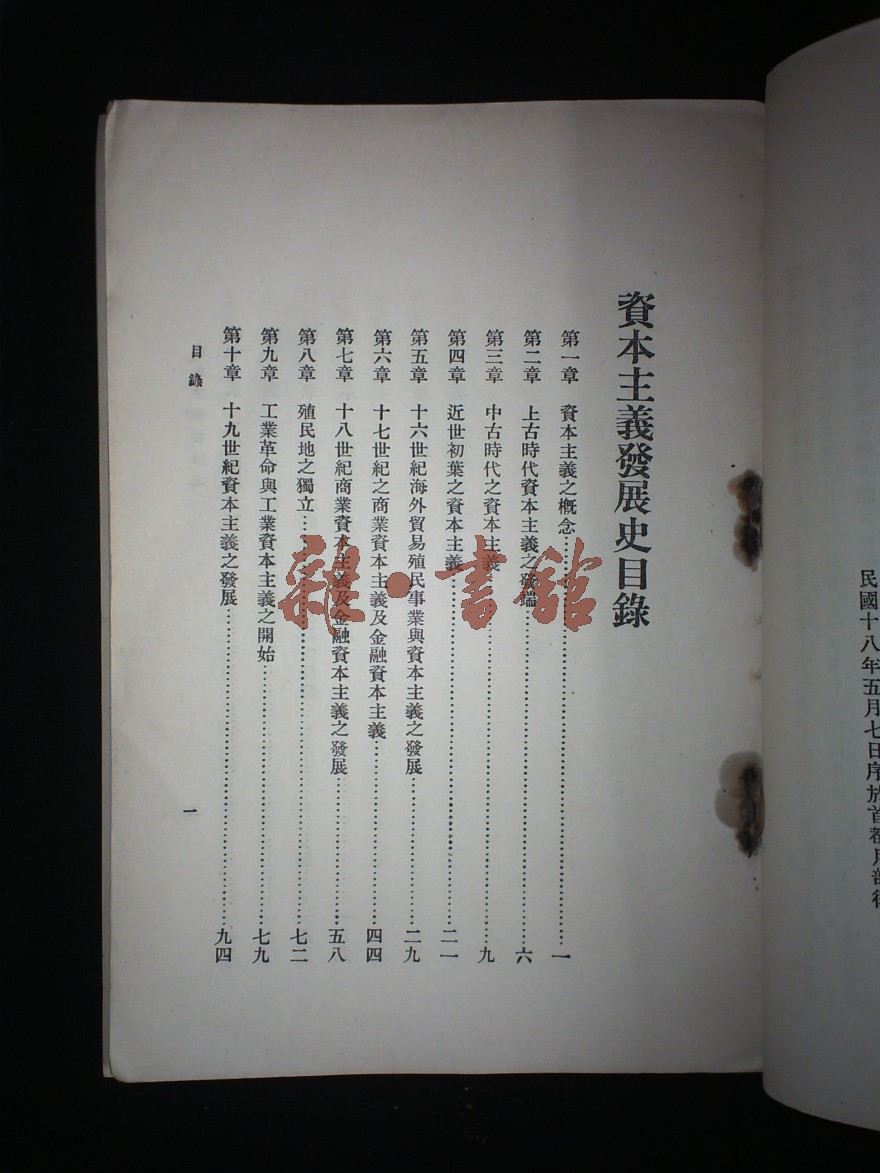 民國十八年五月七日序於首都
資本主義發展史目錄
第一章 資本主義之概念……一
第二章 上古時代資本主義之發端……六
第三章 中古時代之資本主義……九
第四章 近世初葉之資本主義……二一
第五章 十六世紀海外貿易殖民事業與資本主義之發展……二九
第六章 十七世紀之商業資本主義及金融資本主義……四四
第七章 十八世紀商業資本主義及金融資本主義之發展……五八
第八章 殖民地之獨立……七二
第九章 工業革命與工業資本主義之開始……七九
第十章 十九世紀資本主義之發展……九四
目錄
一
雜·書館